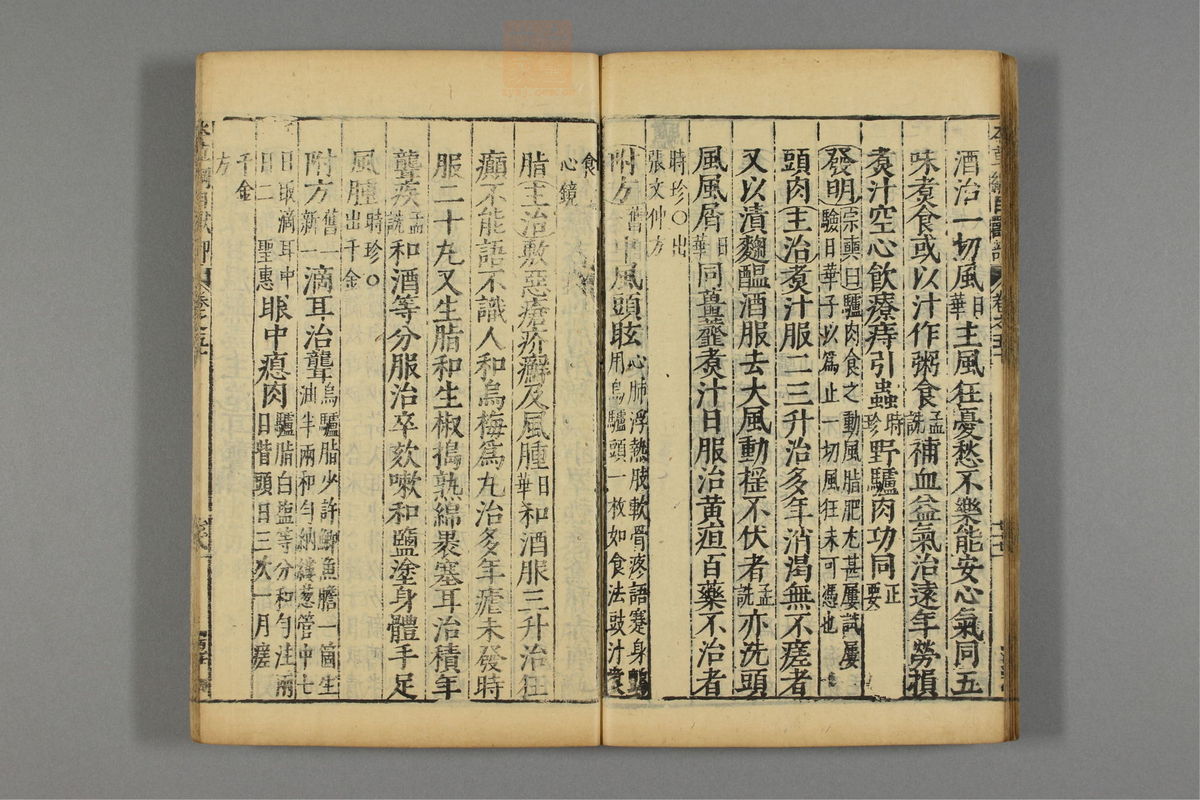 酒治一切風日華主風狂憂愁不樂能安心氣同五
味煑食或以汁作粥食孟詵補血益氣治遠年勞損
煑汁空心飲療痔引蟲時珍野驢肉功同正要
發明宗奭曰驢肉食之動風脂肥尤甚屢試屢
驗日華子以爲止一切風狂未可憑也
頭肉主治煑汁服二三升治多年消渴無不瘥者
又以漬麴醞酒服去大風動搖不伏者孟詵亦洗頭
風風屑日華同薑虀煑汁日服治黄疸百藥不治者
時珍○出
張文仲方
附方舊一中風頭眩心肺浮熱肢軟骨疼語蹇身顫
用烏驢頭一枚如食法豉汁煑
食
心鏡
脂主治敷惡瘡疥癬及風腫日華和酒服三升治狂
癲不能語不識人和烏梅爲丸治多年瘧未發時
服二十丸又生脂和生椒搗熟綿裹塞耳治積年
聾疾孟詵和酒等分服治卒欬嗽和鹽塗身體手足
風腫時珍○出千金
附方舊一新一滴耳治聾烏驢脂少許鯽魚膽一箇生
油半兩和勻納樓葱管中七
日取滴耳中日二聖惠眼中瘜肉驢脂白鹽等分和勻注兩
目眥頭日三次一月瘥
千金
方